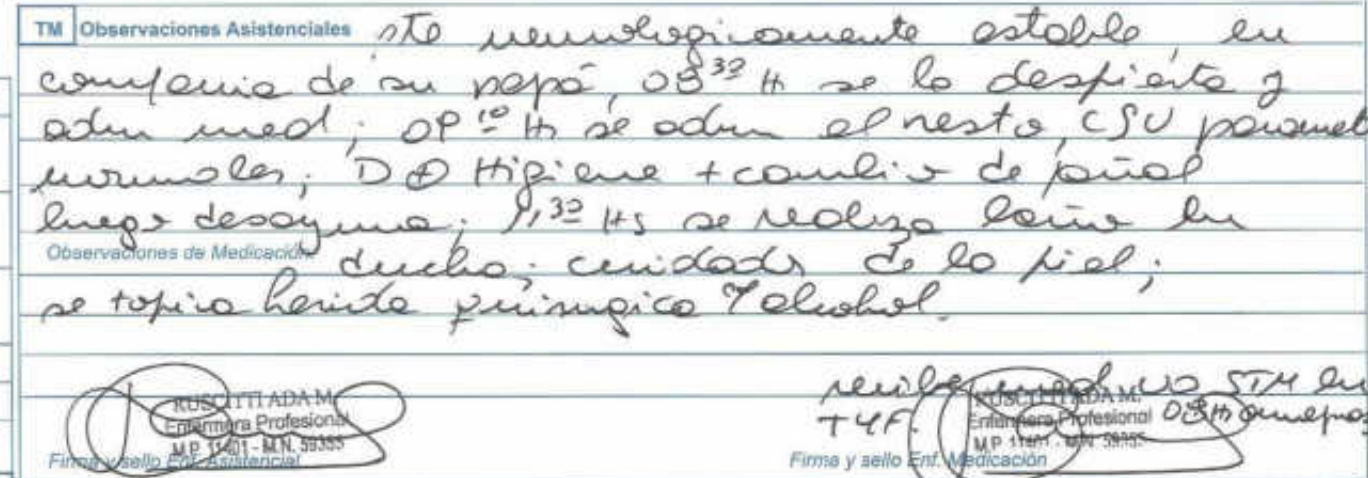 TM Observaciones Asistenciales pte neurologicamente estable, en
compania de su papá, 08 30 H se lo despierta y
adm med; 09 10 Hs se adm el resto, CSV paramet
normales; D⊕ Higiene + cambio de pañal
luego desayuna; 11 30 Hs se realiza baño en
Observaciones de Medicación
ducha; cuidados de la piel;
se topica herida quirurgica alcohol.
recibe med VO STM en
T y F. 08 H
RUSCITTI ADA M.
Enfermera Profesional
M.P. 11401 - M.N. 59355
Firma y sello Enf. Asistencial
RUSCITTI ADA M.
Enfermera Profesional
M.P. 11401 - M.N. 59355
Firma y sello Enf. Medicación